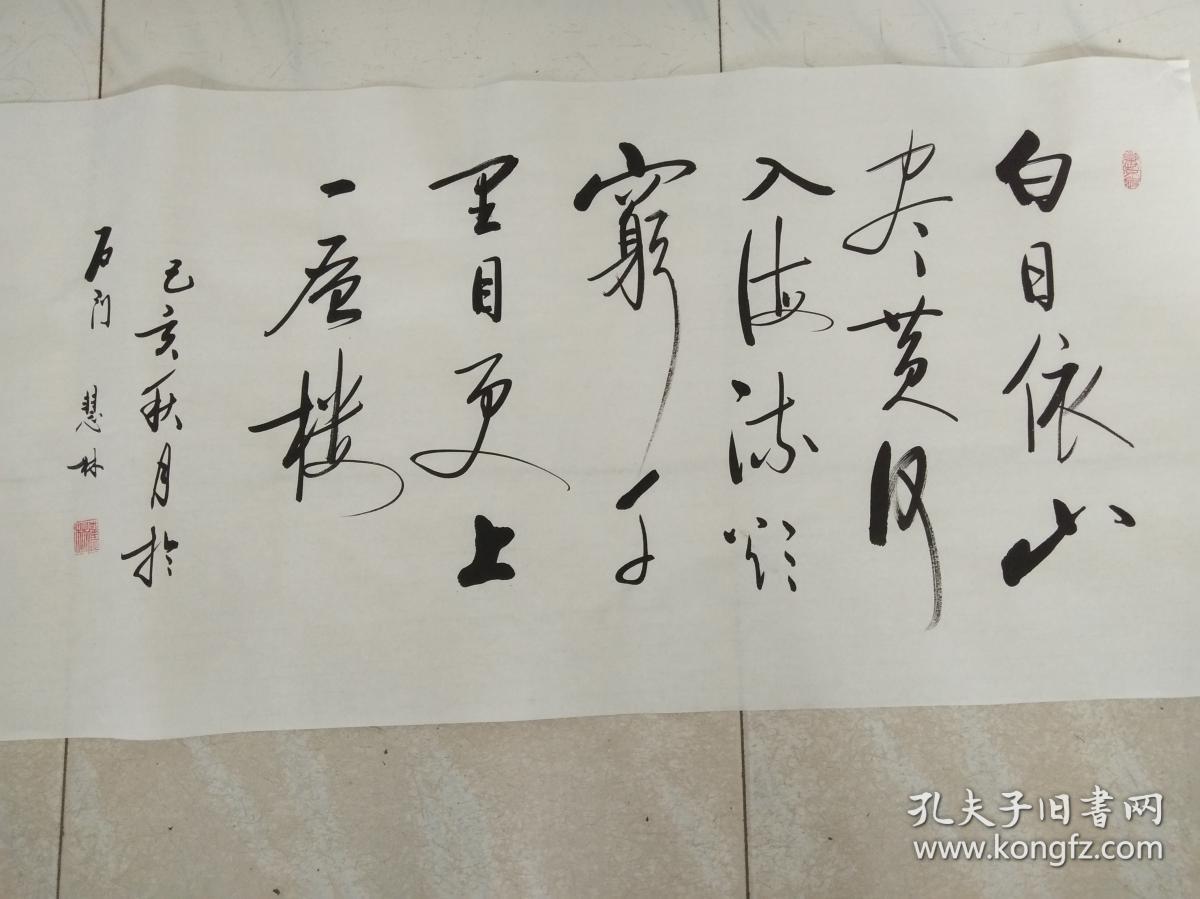 白日依山
尽黄河
入海流欲
窮千
里目更上
一层楼
己亥秋月於
石门 慧林
孔夫子旧書网
www.kongfz.com